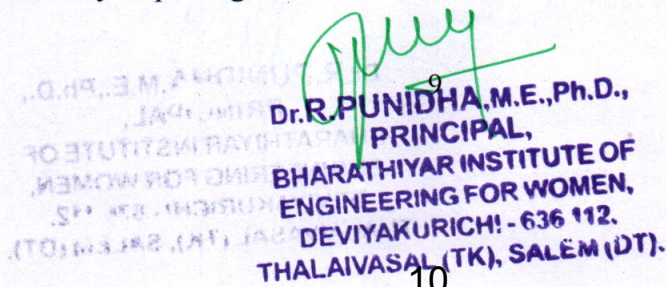 9
Dr.R.PUNIDHA,M.E.,Ph.D.,
PRINCIPAL,
BHARATHIYAR INSTITUTE OF
ENGINEERING FOR WOMEN,
DEVIYAKURICHI - 636 112.
THALAIVASAL (TK), SALEM (DT).
10